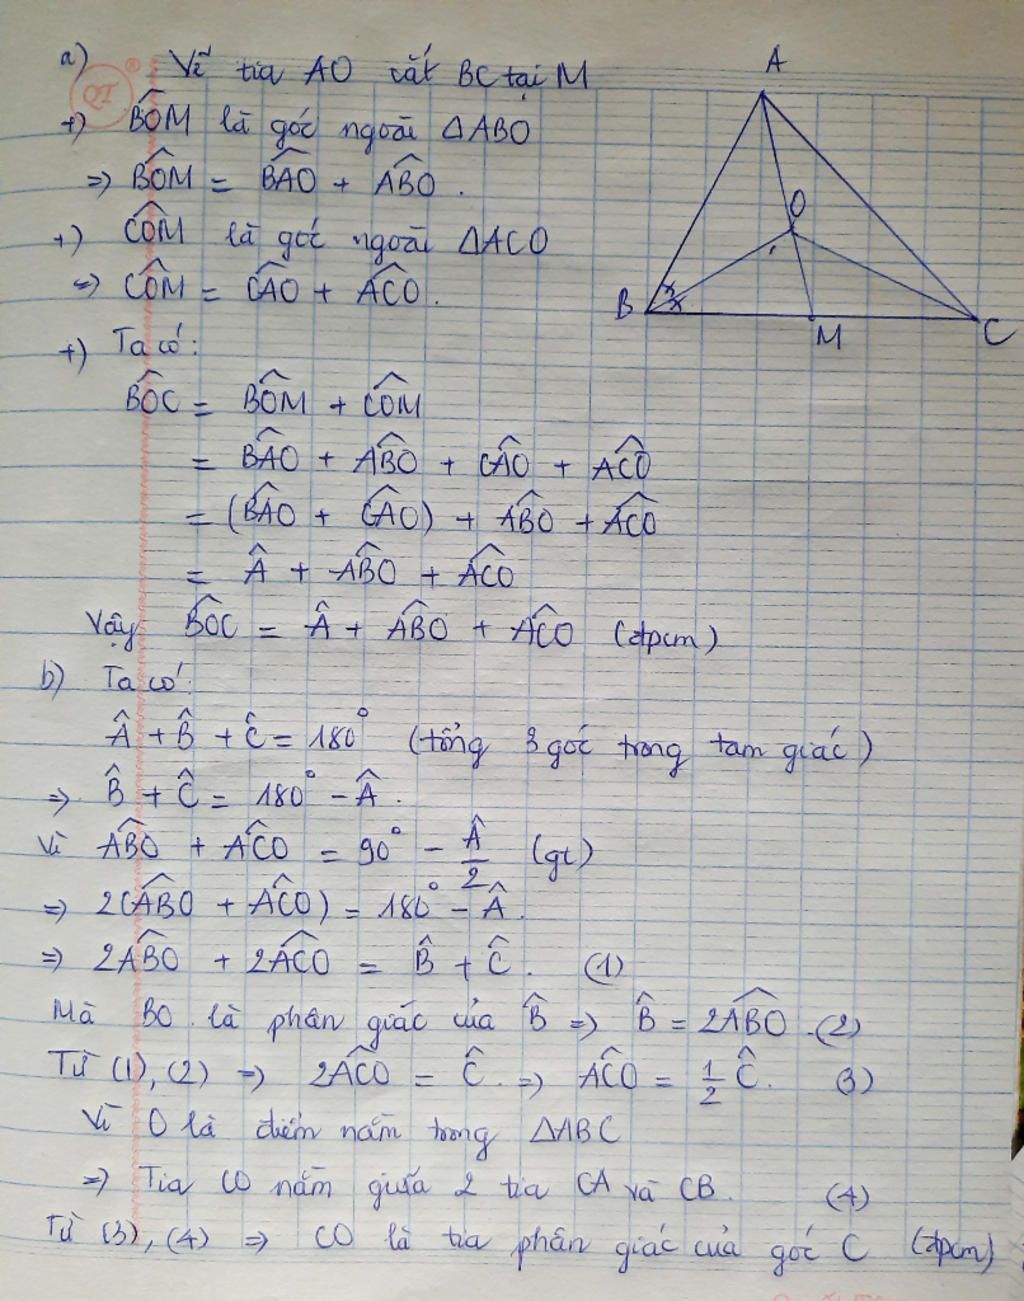 a) Vẽ tia AO cắt BC tại M
+) BÔM là góc ngoài ΔABO
=> BÔM = BÂO + AB̂O.
+) CÔM là góc ngoài ΔACO
=> CÔM = CÂO + AĈO.
+) Ta có:
BÔC = BÔM + CÔM
= BÂO + AB̂O + CÂO + AĈO
= (BÂO + CÂO) + AB̂O + AĈO
= Â + AB̂O + AĈO
Vậy BÔC = Â + AB̂O + AĈO (đpcm)
b) Ta có:
Â + B̂ + Ĉ = 180° (tổng 3 góc trong tam giác)
=> B̂ + Ĉ = 180° - Â.
Vì AB̂O + AĈO = 90° - Â/2 (gt)
=> 2(AB̂O + AĈO) = 180° - Â.
=> 2AB̂O + 2AĈO = B̂ + Ĉ. (1)
Mà BO là phân giác của B̂ => B̂ = 2AB̂O. (2)
Từ (1), (2) => 2AĈO = Ĉ. => AĈO = 1/2 Ĉ. (3)
Vì O là điểm nằm trong ΔABC
=> Tia CO nằm giữa 2 tia CA và CB. (4)
Từ (3), (4) => CO là tia phân giác của góc C (đpcm)
A
O
B
M
C